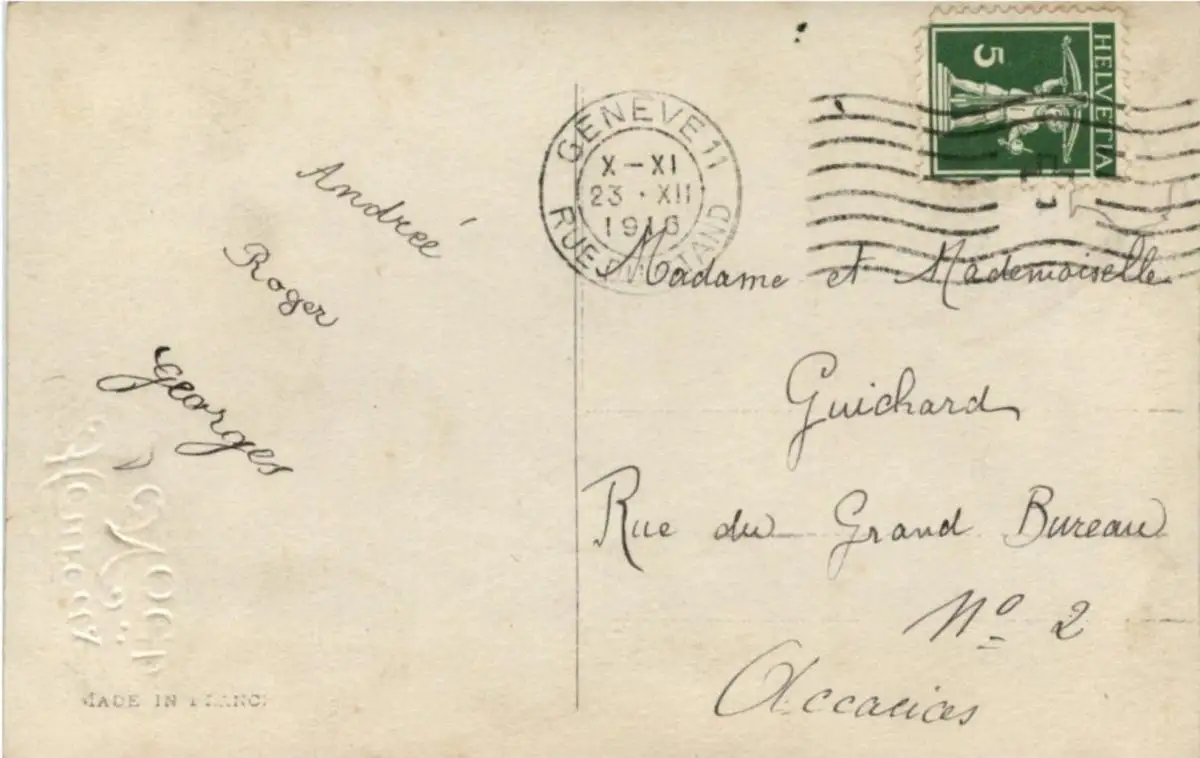 Andreé
Roger
Georges
MADE IN FRANCE
HELVETIA
5
GENEVE 11
X–XI
23·XII
1916
RUE STAND
Madame et Mademoiselle
Guichard
Rue du Grand Bureau
Nº 2
Accacias